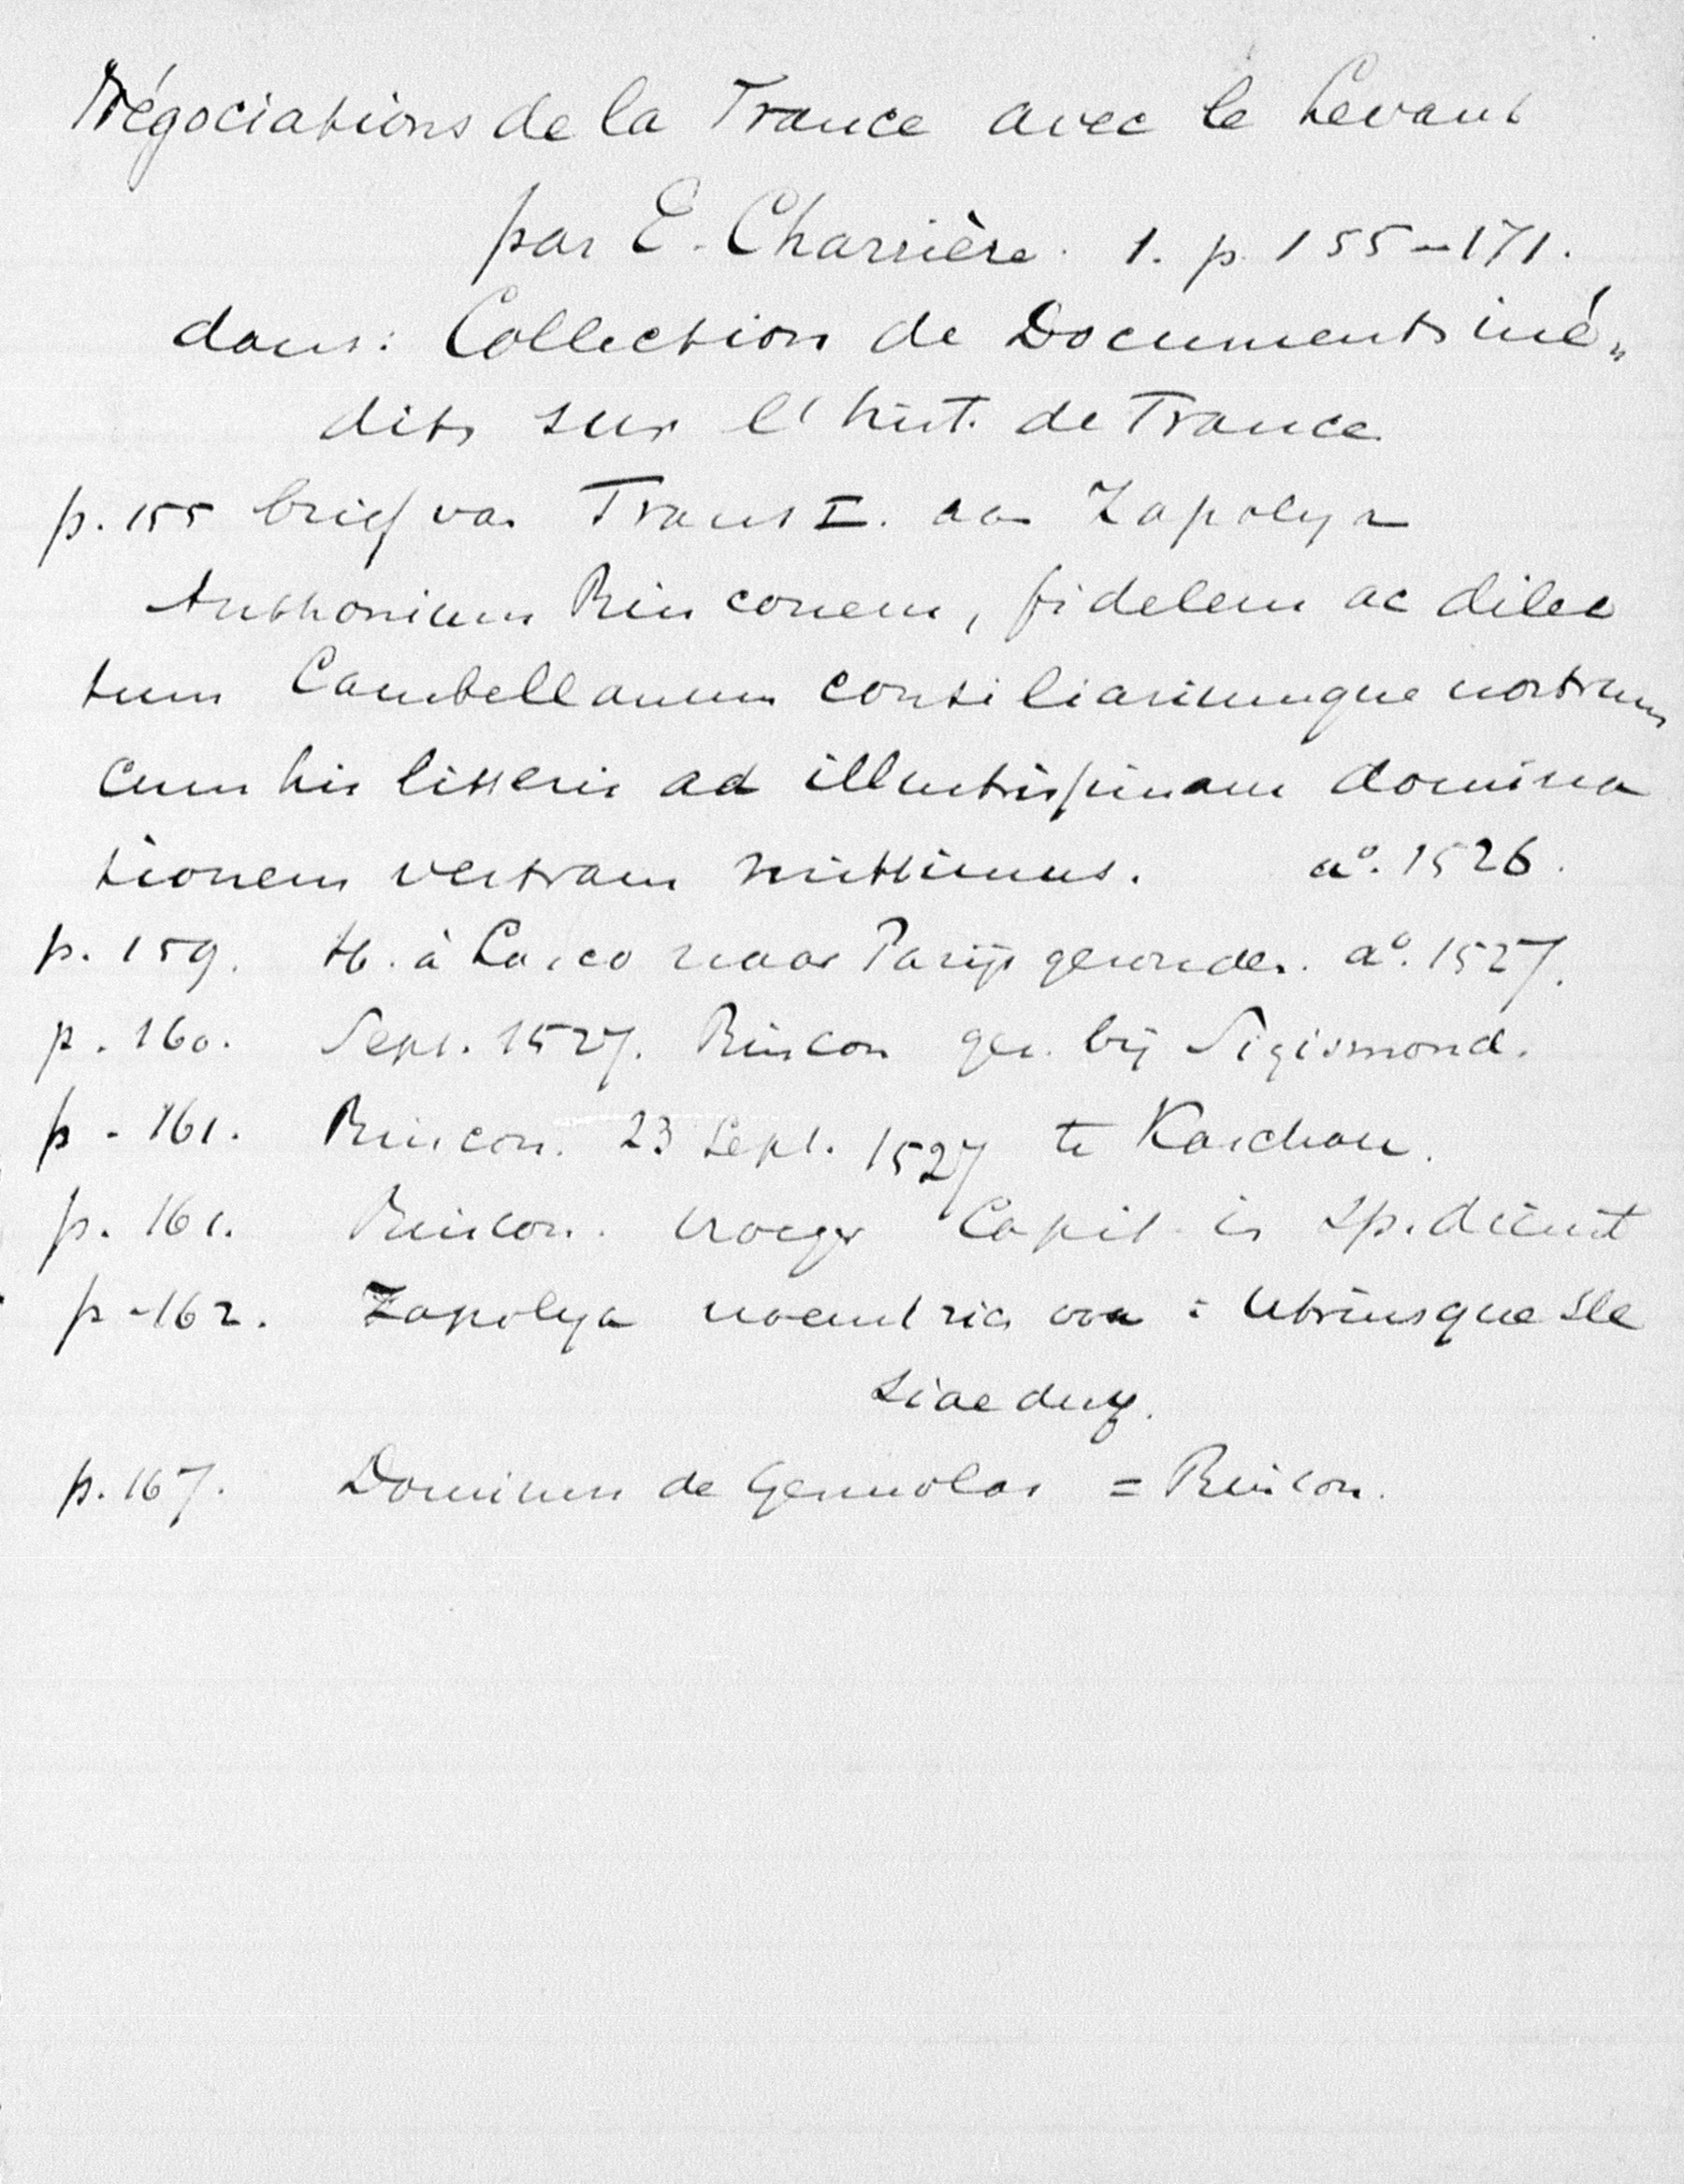 Négociations de la France avec le Levant
par E. Charrière. 1. p. 155-171.
dans: Collection de Documents iné„
dits sur l'hist. de France
p. 155 brief van Frans I. aan Zapolya
Anthonium Rinconem, fidelem ac dilec
tum Cambellanum consiliariumque nostrum
cum his litteris ad illustrissimam domina
tionem vestram mittimus. a°. 1526.
p. 159. H. à Lasco naar Parijs gezonden. a°. 1527.
p. 160. Sept. 1527. Rincon gez. bij Sigismond.
p. 161. Rincon. 23 Sept. 1527 te Kaschau.
p. 161. Rincon. vroeger Capit. in Sp. dienst
p. 162. Zapolya noemt zich ook: Utriusque Sle
siae dux.
p. 167. Dominum de = Rincon.